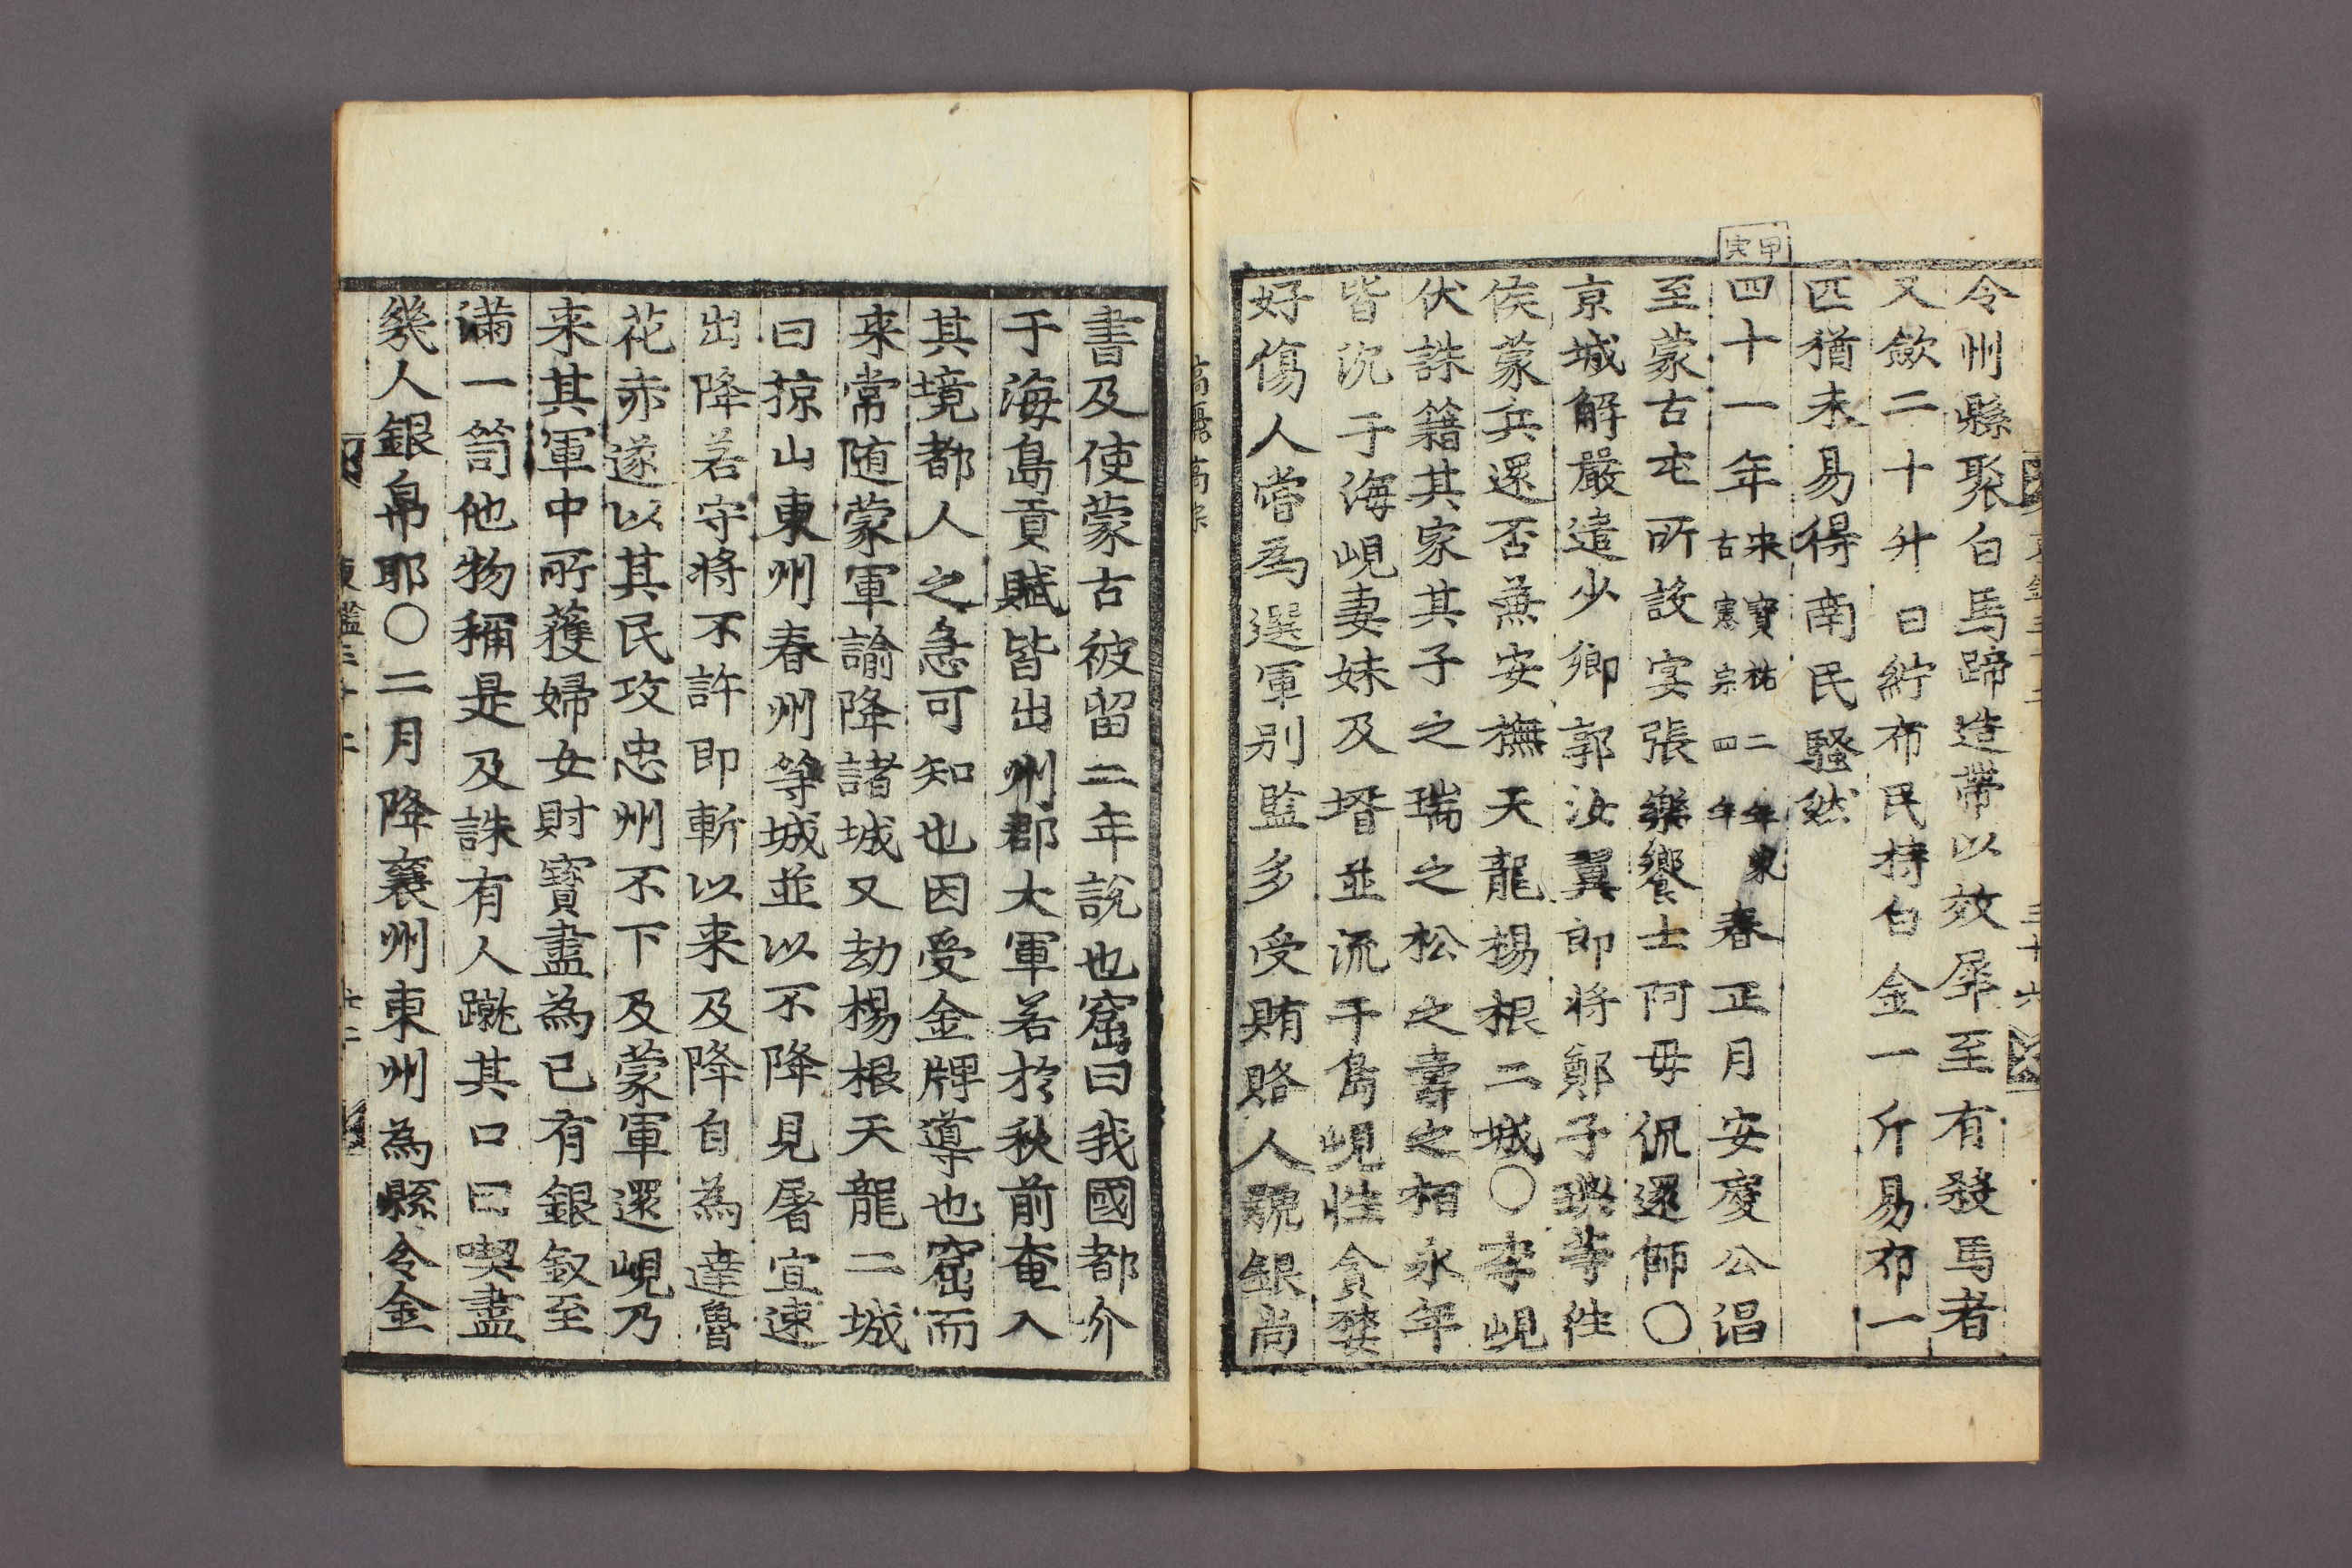 甲寅
令州縣聚白馬蹄造帶以效犀至有殺馬者
又歛二十升白紵布民持白金一斤易布一
匹猶未易得南民騷然
四十一年宋寶祐二年蒙古憲宗四年春正月安慶公淐
至蒙古屯所設宴張樂饗士阿毋侃還師〇
京城解嚴遣少卿郭汝翼郎將鄭子璵等往
侯蒙兵還否兼安撫天龍楊根二城〇李峴
伏誅籍其家其子之瑞之松之壽之柏永年
皆沉于海峴妻妹及壻並流于島峴性貪婪
好傷人嘗爲選軍別監多受賄賂人號銀尚
書及使蒙古彼留二年說也窟曰我國都介
于海島貢賦皆出州郡大軍若於秋前奄入
其境都人之急可知也因受金牌導也窟而
来常随蒙軍諭降諸城又劫楊根天龍二城
曰掠山東州春州等城並以不降見屠宜速
出降若守將不許即斬以来及降自為達魯
花赤遂以其民攻忠州不下及蒙軍還峴乃
来其軍中所獲婦女財寶盡為已有銀釵至
滿一笥他物稱是及誅有人蹴其口曰喫盡
幾人銀帛耶〇二月降襄州東州為縣令金